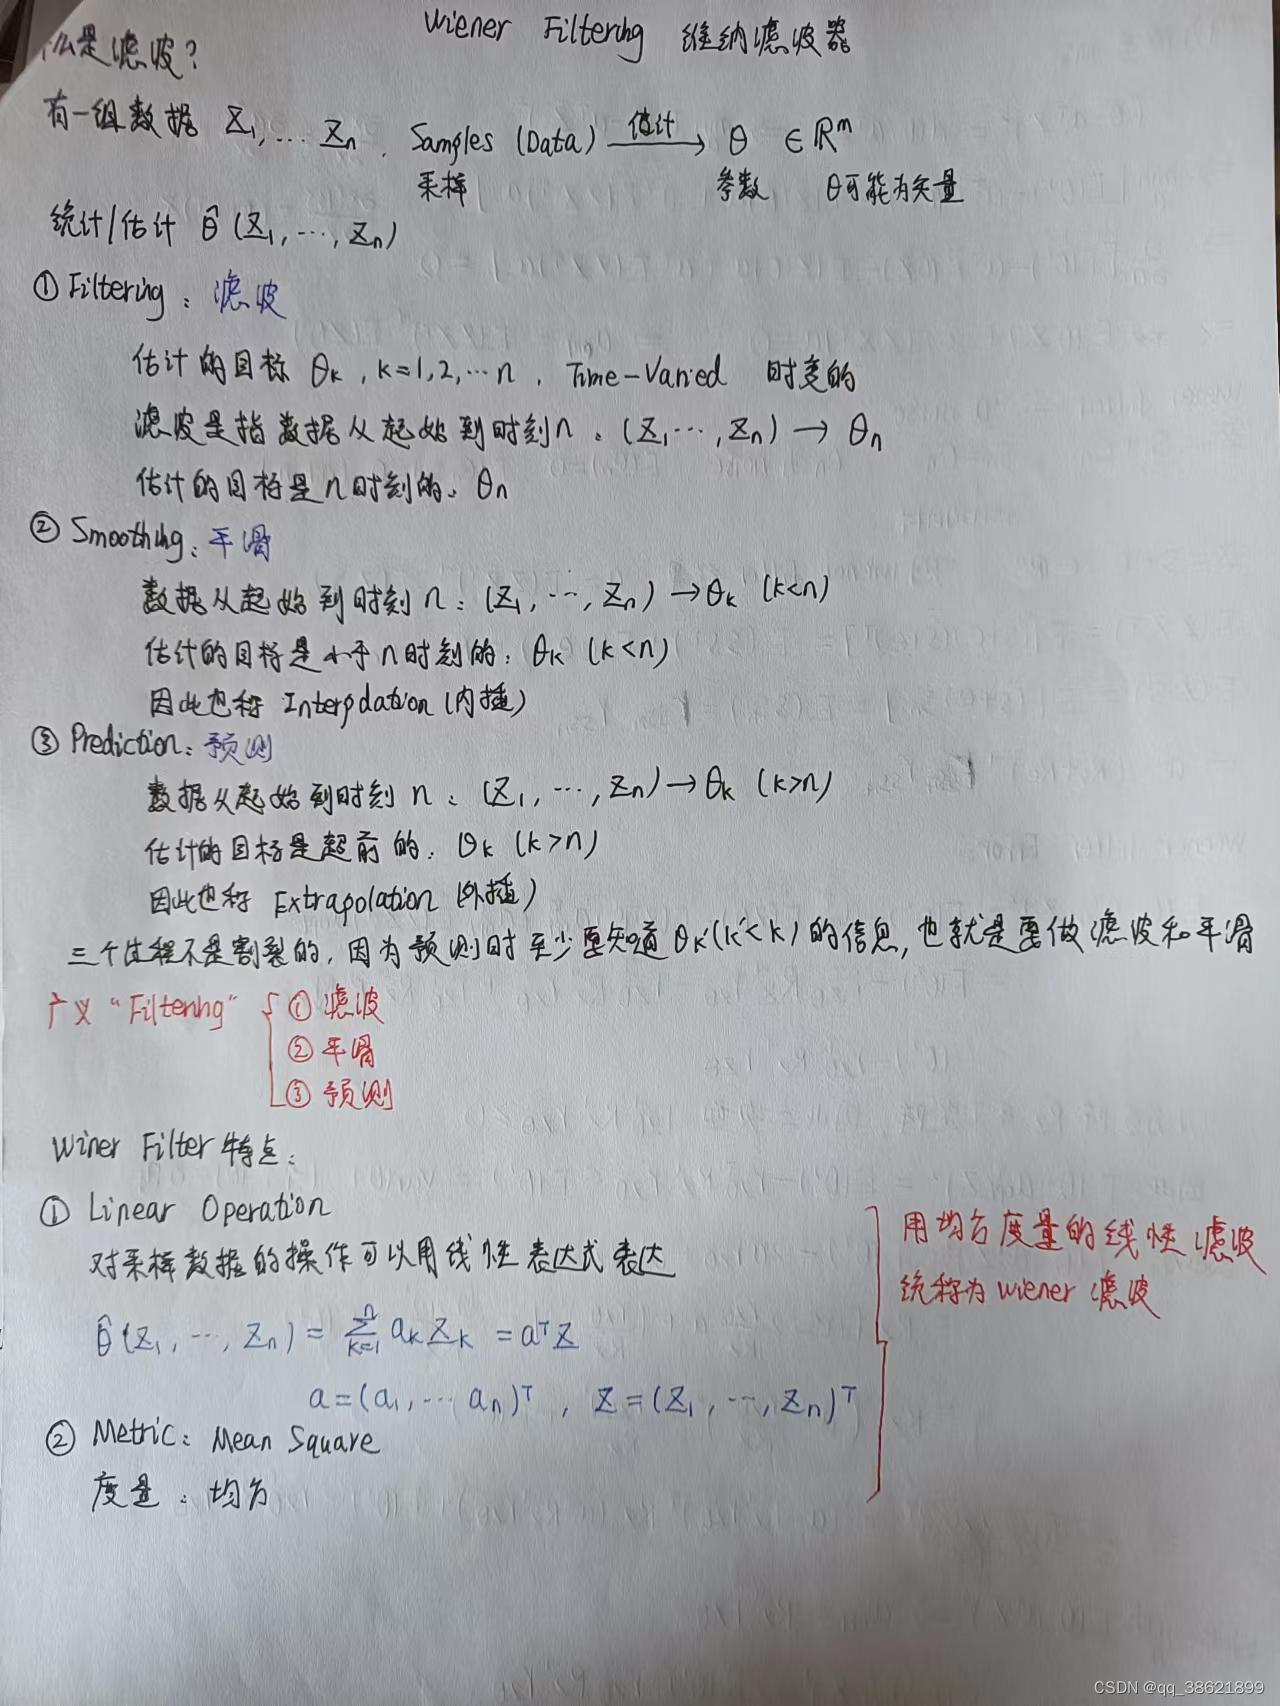 Wiener Filtering 维纳滤波器
么是滤波?
有一组数据 Z₁,…Zn. Samples (Data) 估计→ θ ∈ ℝᵐ
采样 参数 θ可能为矢量
统计/估计 θ̂(Z₁,…,Zn)
① Filtering: 滤波
估计的目标 θk, k=1,2,…n, Time-Varied 时变的
滤波是指数据从起始到时刻n: (Z₁…,Zn) → θn
估计的目标是n时刻的: θn
② Smoothing: 平滑
数据从起始到时刻 n: (Z₁,…,Zn) → θk (k<n)
估计的目标是小于n时刻的: θk (k<n)
因此也称 Interpolation (内插)
③ Prediction: 预测
数据从起始到时刻 n: (Z₁,…,Zn) → θk (k>n)
估计的目标是超前的: θk (k>n)
因此也称 Extrapolation (外插)
三个过程不是割裂的, 因为预测时至少要知道θk'(k'<k)的信息, 也就是要做滤波和平滑
广义 "Filtering" { ① 滤波
② 平滑
③ 预测
Winer Filter 特点:
① Linear Operation
对采样数据的操作可以用线性表达式表达
θ̂(Z₁,…,Zn) = ∑ₖ₌₁ⁿ akZk = aᵀZ
a=(a₁,…an)ᵀ, Z=(Z₁,…,Zn)ᵀ
② Metric: Mean Square
度量: 均方
用均方度量的线性滤波
统称为 Wiener 滤波
CSDN @qq_38621899